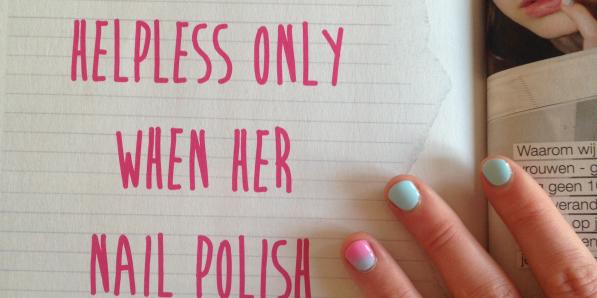 HELPLESS ONLY
WHEN HER
NAIL POLISH
Waarom wij
vrouwen - g
geen 1
verand
op j